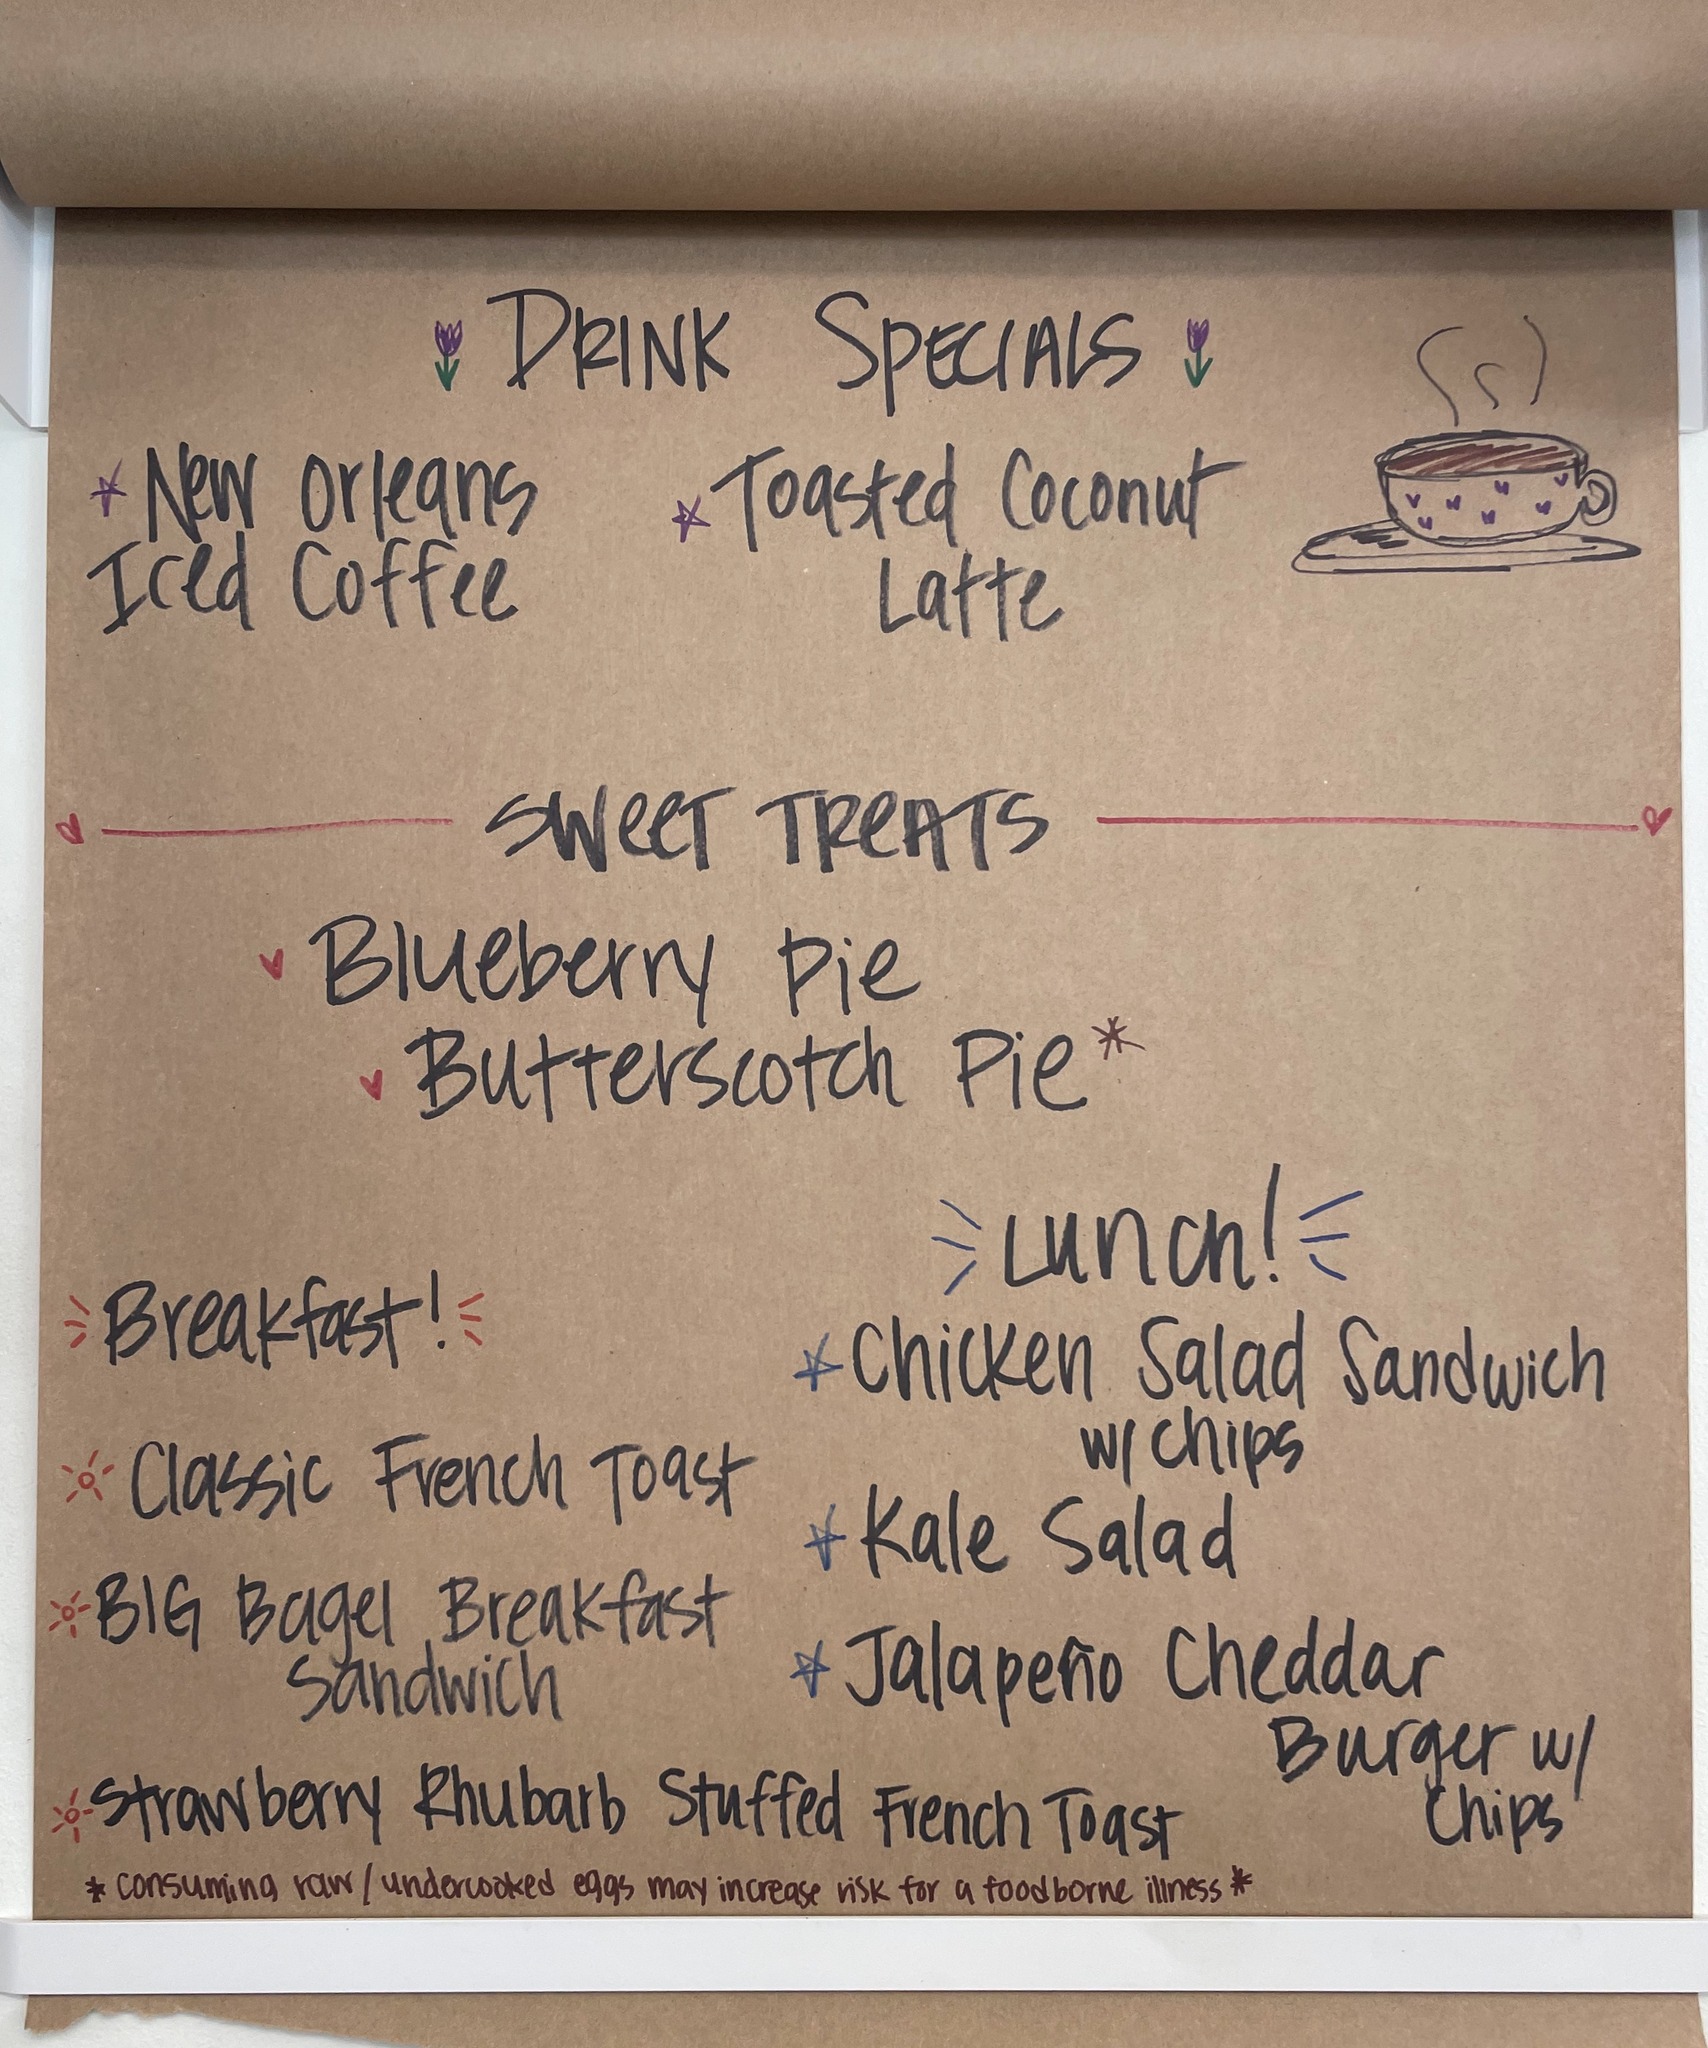 DRINK SPECIALS
New Orleans
Iced Coffee
Toasted Coconut
Latte
SWEET TREATS
Blueberry Pie
Butterscotch Pie*
Breakfast!
Classic French Toast
BIG Bagel Breakfast
Sandwich
Strawberry Rhubarb Stuffed French Toast
Lunch!
Chicken Salad Sandwich
w/ chips
Kale Salad
Jalapeño Cheddar
Burger w/
Chips
* consuming raw/undercooked eggs may increase risk for a foodborne illness *